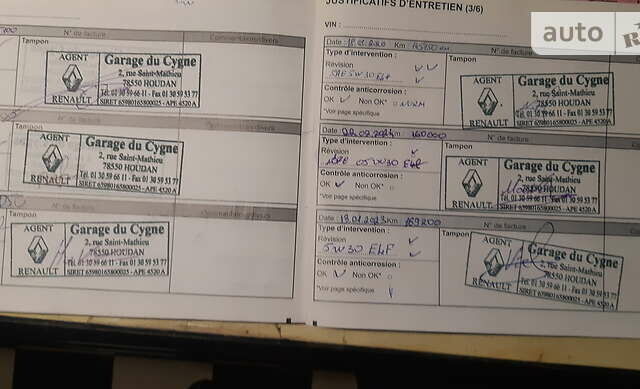 JUSTIFICATIFS D'ENTRETIEN (3/6)
N° de facture
Tampon
AGENT
RENAULT
Garage du Cygne
2, rue Saint-Mathieu
78550 HOUDAN
Tél. 01 30 59 66 11 - Fax 01 30 59 53 77
SIRET 65980165800025 - APE 4520 A
N° de facture
Tampon
AGENT
RENAULT
Garage du Cygne
2, rue Saint-Mathieu
78550 HOUDAN
Tél. 01 30 59 66 11 - Fax 01 30 59 53 77
SIRET 65980165800025 - APE 4520 A
N° de facture
Tampon
AGENT
RENAULT
Garage du Cygne
2, rue Saint-Mathieu
78550 HOUDAN
Tél. 01 30 59 66 11 - Fax 01 30 59 53 77
SIRET 65980165800025 - APE 4520 A
VIN :
Date Km
Type d'intervention :
Révision
5W30 ELF
Contrôle anticorrosion :
OK Non OK*
*Voir page spécifique
N° de facture
Tampon
AGENT
RENAULT
Garage du Cygne
2, rue Saint-Mathieu
78550 HOUDAN
Tél. 01 30 59 66 11 - Fax 01 30 59 53 77
SIRET 65980165800025 - APE 4520 A
Date Km 160000
Type d'intervention :
Révision
5W30 ELF
Contrôle anticorrosion :
OK Non OK*
*Voir page spécifique
N° de facture
Tampon
AGENT
RENAULT
Garage du Cygne
2, rue Saint-Mathieu
78550 HOUDAN
Tél. 01 30 59 66 11 - Fax 01 30 59 53 77
SIRET 65980165800025 - APE 4520 A
Date 13.01.2023 Km 169200
Type d'intervention :
Révision
5W30 ELF
Contrôle anticorrosion :
OK Non OK*
*Voir page spécifique
N° de facture
Tampon
AGENT
RENAULT
Garage du Cygne
2, rue Saint-Mathieu
78550 HOUDAN
Tél. 01 30 59 66 11 - Fax 01 30 59 53 77
SIRET 65980165800025 - APE 4520 A
auto